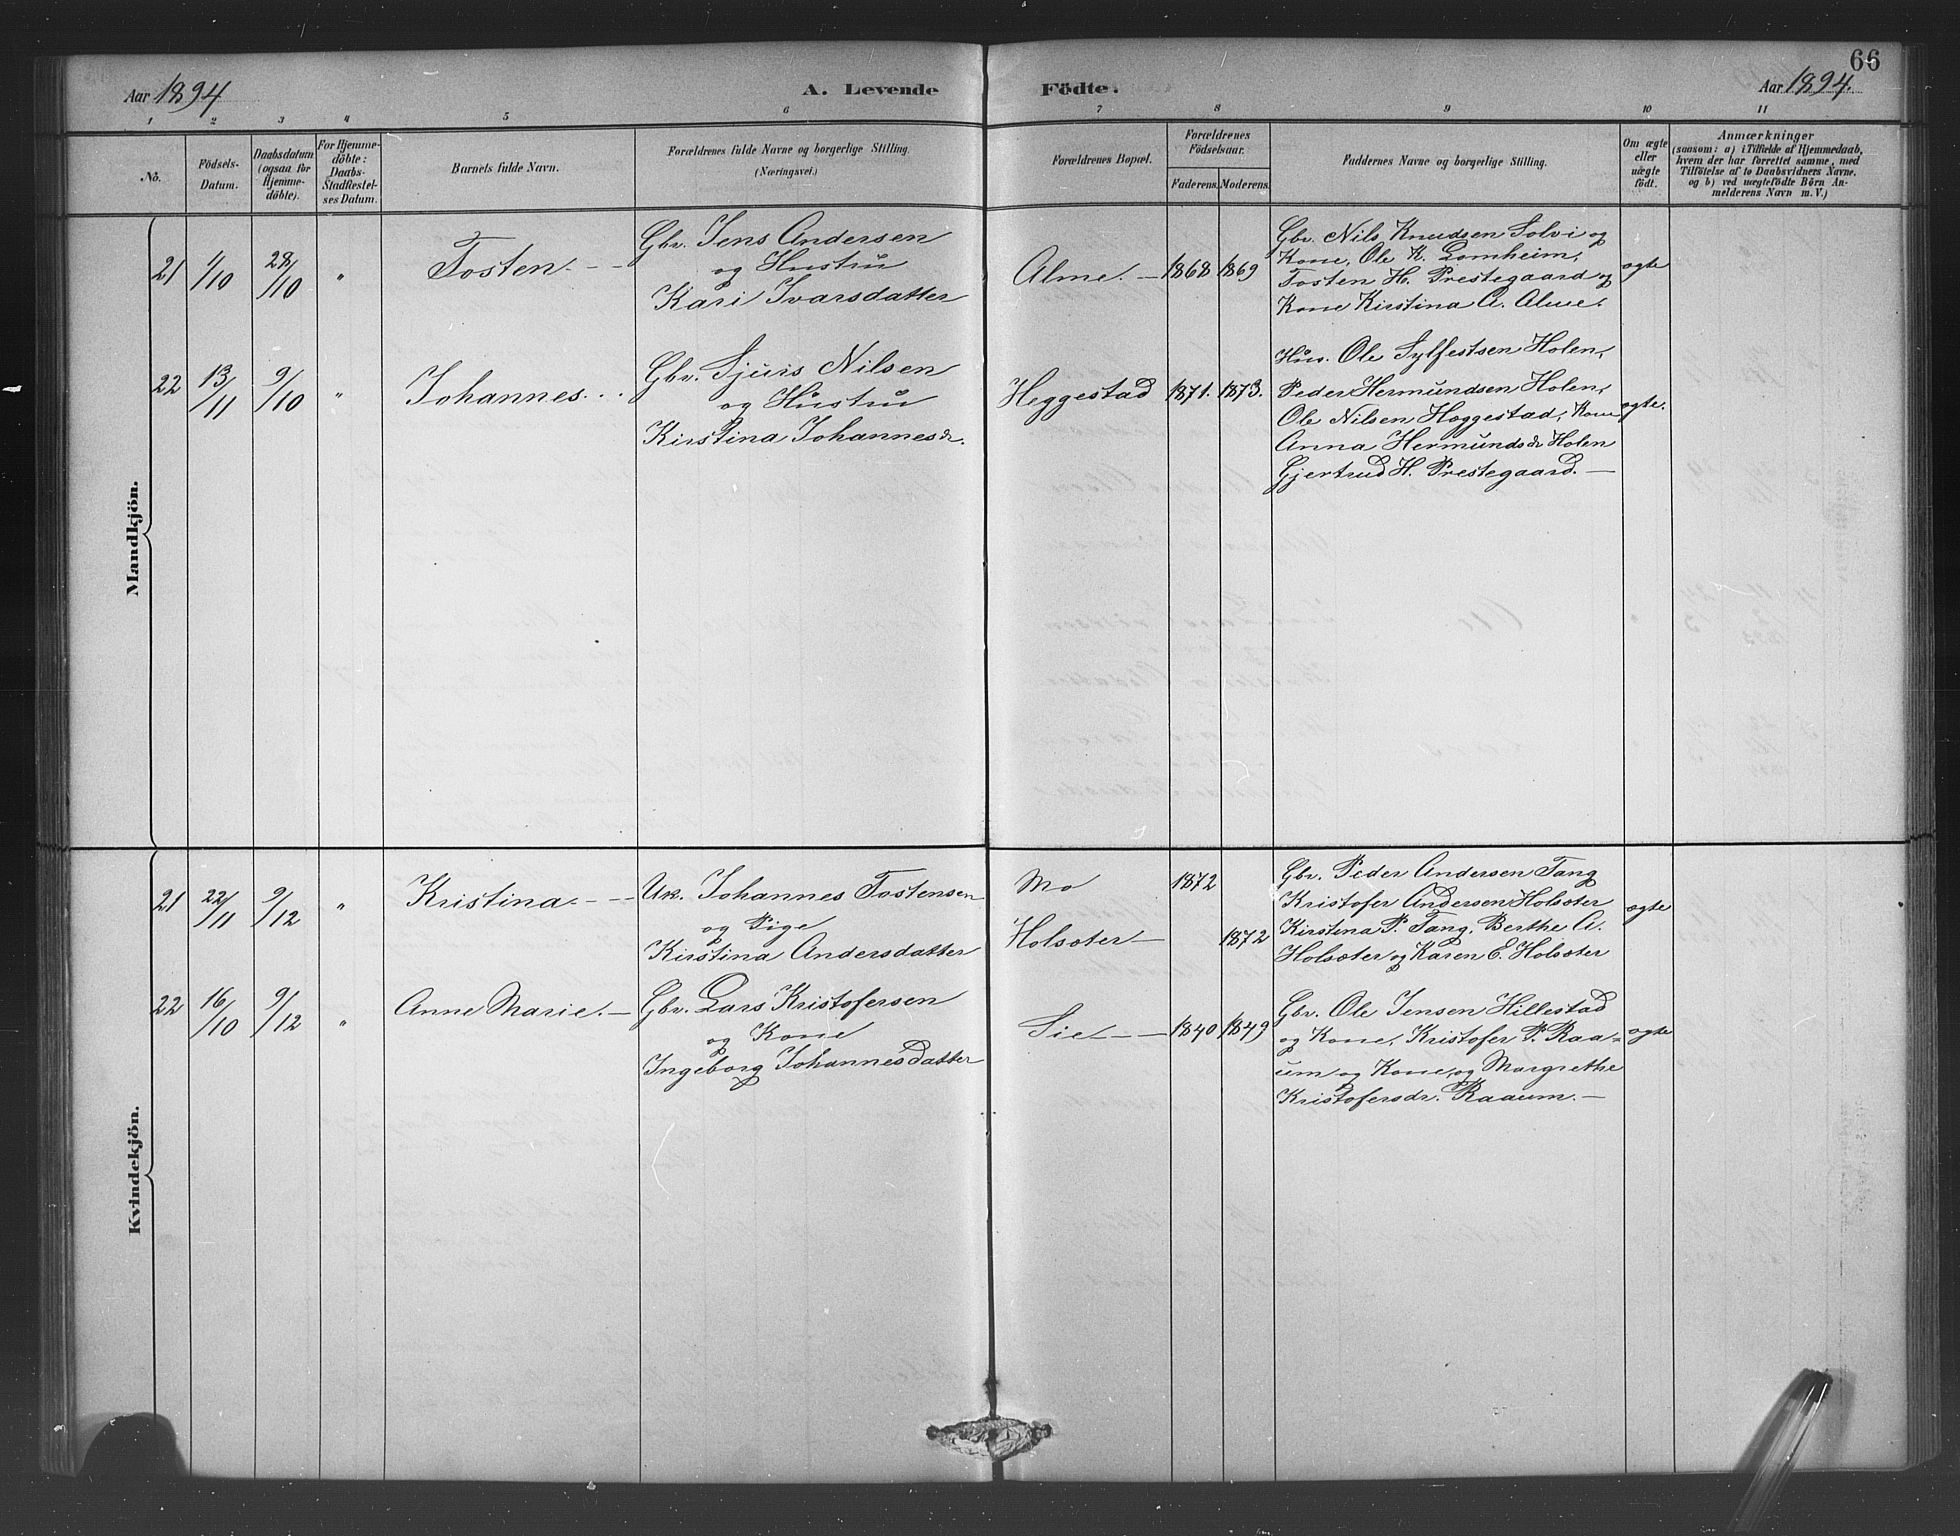 66
Aar 1894
A. Levende
Födte.
Aar 1894.
1 2 3 4 5 6 7 8 9 10 11
No.
Födsels-
Datum.
Daabsdatum
(ogsaa for
Hjemme-
döbte).
For Hjemme-
döbte:
Daabs-
Stadfæstel-
ses Datum.
Barnets fulde Navn.
Forældrenes fulde Navne og borgerlige Stilling.
(Næringsvei.)
Forældrenes Bopæl.
Forældrenes
Födselsaar.
Faderens. Moderens.
Faddernes Navne og borgerlige Stilling.
Om ægte
eller
uægte
födt.
Anmærkninger
(saasom: a) i Tilfælde af Hjemmedaab,
hvem der har forrettet samme, med
Tilföielse af to Daabsvidners Navne.
og b) ved uægtefödte Börn An-
melderens Navn m. V.)
Mandkjön.
21 4/10 28/10 " Tosten
Gbr. Jens Andersen
og Hustru
Kari Ivarsdatter
Alme 1868 1869
Gbr. Nils Knudsen Solvi og
Kone, Ole K. Lomheim,
Tosten H. Prestegaard og
Kone Kirstina A. Alme.
ægte
22 13/11 9/10 " Johannes
Gbr. Sjurs Nilsen
og Hustru
Kirstina Johannesdr.
Heggestad 1871. 1873.
Hus. Ole Sylfestsen Holen,
Peder Hermundsen Holen,
Ole Nilsen Heggestad, Kone
Anna Hermundsdr Holen
Gjertrud H. Prestegaard.
ægte.
Kvindekjön.
21 22/11 9/12 " Kristina
Uk. Johannes Tostensen
og Pige
Kirstina Andersdatter
Mo 1872
Holsæter 1872
Gbr. Peder Andersen Tang
Kristofer Andersen Holsæter
Kirstina P. Tang, Berthe A.
Holsæter og Karen E. Holsæter
ægte
22 16/10 9/12 " Anne Marie.
Gbr. Lars Kristofersen
og Kone
Ingeborg Johannesdatter
Sie 1840 1849
Gbr. Ole Jensen Hillestad
og Kone, Kristofer P. Raa-
um og Kone, og Margrethe
Kristofersdr. Raaum.
ægte